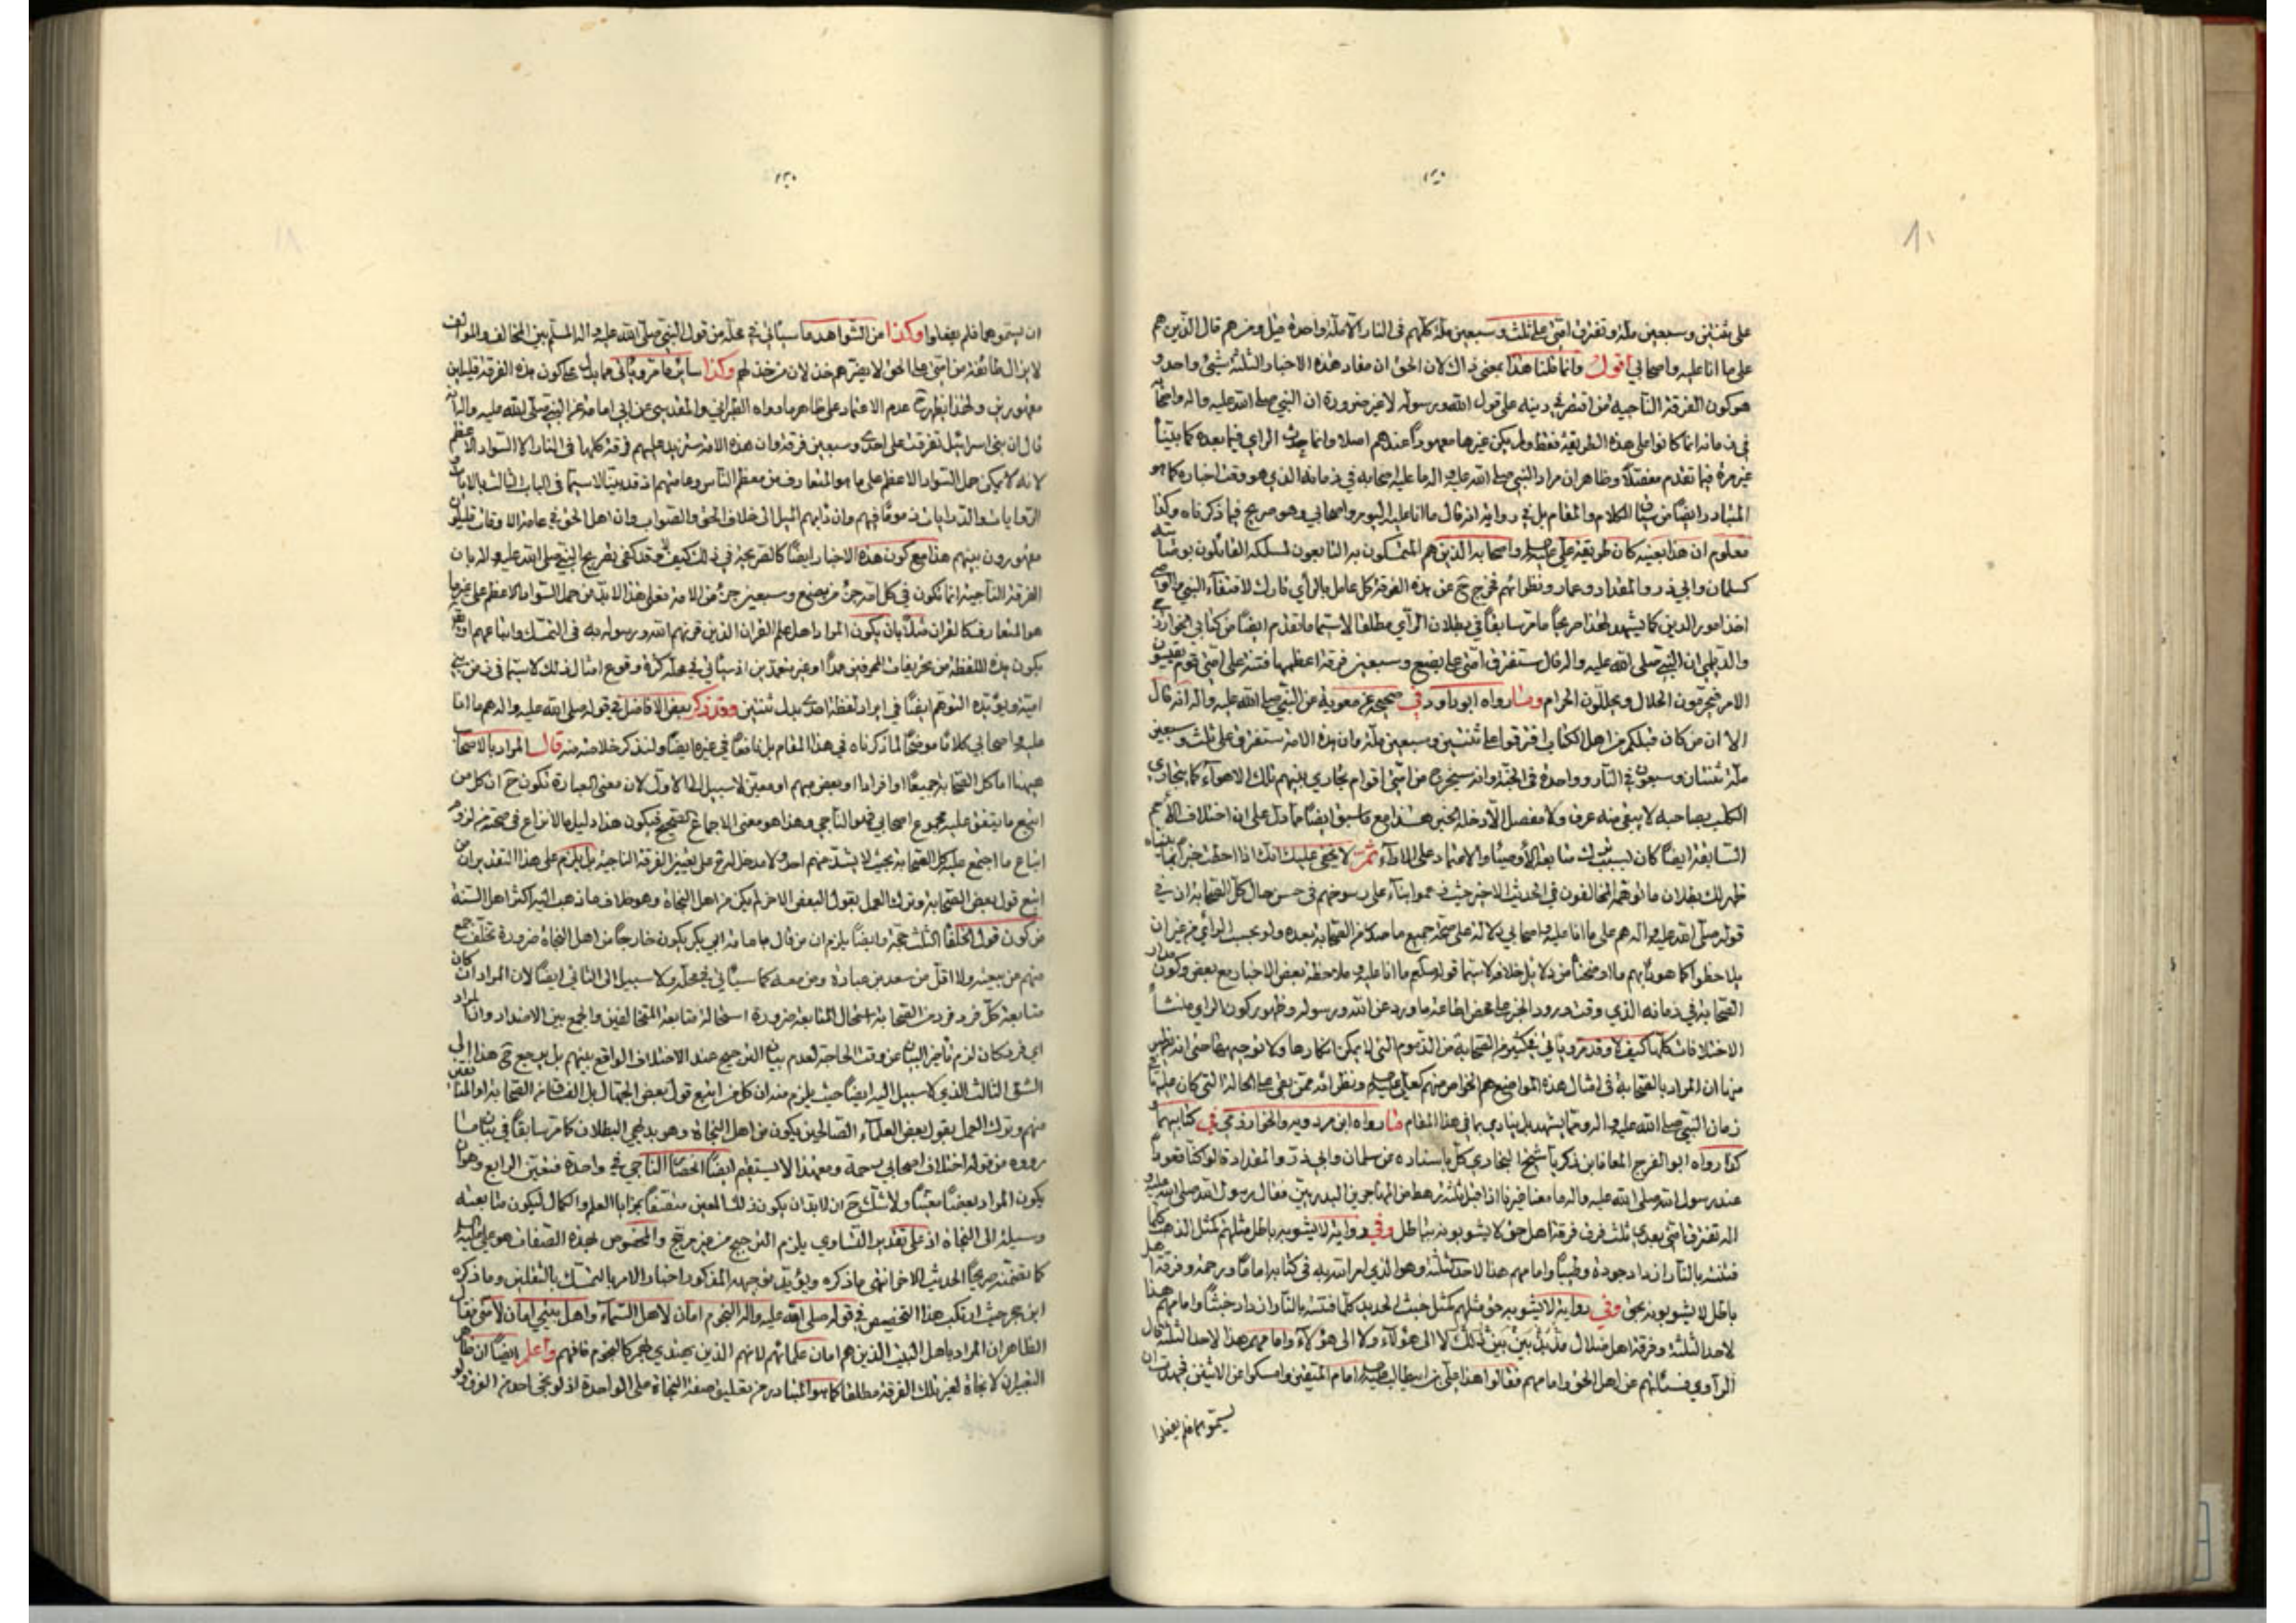 على ثنتين وسبعين ملة وتفترق امتي على ثلث وسبعين ملة كلهم في النار الا ملة واحدة قيل ومن هم قال الذين هم
على ما انا عليه واصحابي اقول وانما قلنا هذا بمعنى ذاك لان الحق ان مفاد هذه الاخبار الثلثة شيئ واحد و
هو كون الفرقة الناجية من اقتصر في دينه على قول الله ورسوله لا غير ضرورة ان النبي صلى الله عليه واله واصحابه
في زمانه انما كانوا على هذه الطريقة فقط ولم يكن غيرها معهودا عندهم اصلا وانما حدث الراي فيما بعده كما بيناه
غير مرة فيما تقدم مفصلا وظاهر ان مراد النبي صلى الله عليه واله ما عليه اصحابه في زمانه الذي هو وقت اخباره كما هو
المتبادر ايضا من سياق الكلام والمقام بل في رواية انه قال ما انا عليه اليوم واصحابي وهو صريح فيما ذكرناه وكذا
معلوم ان هذا بعينه كان طريقة علي عليه السلام واصحابه الذين هم المتمسكون به التابعون لمسلكه القائلون بوصايته
كسلمان وابي ذر والمقداد وعمار ونظرائهم فخرج ح عن هذه الفرقة كل عامل بالراي تارك لاقتفاء النبي والوصي
اخذ امور الدين كما يشهد لهذا صريحا ما مر سابقا في بطلان الراي مطلقا لاسيما ما تقدم ايضا من كتابي الخوارزمي
والديلمي ان النبي صلى الله عليه واله قال ستفترق امتي على بضع وسبعين فرقة اعظمها فتنة على امتي قوم يقيسون
الامر فيحرمون الحلال ويحللون الحرام وما رواه ابو داود في صحيحه عن معوية عن النبي صلى الله عليه واله انه قال
الا ان من كان قبلكم من اهل الكتاب افترقوا على ثنتين وسبعين ملة وان هذه الامة ستفترق على ثلث وسبعين
ملة ثنتان وسبعون في النار وواحدة في الجنة وانه سيخرج من امتي اقوام تجارى بينهم تلك الاهواء كما يتجارى
الكلب بصاحبه لا يبقى منه عرق ولا مفصل الا دخله الخبر هذا مع ما سبق ايضا مما دل على ان اختلاف الامم
السابقة ايضا كان بسبب ترك متابعة الاوصياء والاعتماد على الاراء ثم لا يخفى عليك انك اذا احطت خبرا بما بيناه
ظهر لك بطلان ما توهمه المخالفون في الحديث الاخير حيث زعموا بناء على رسوخهم في حسن حال كل الصحابة ان في
قوله صلى الله عليه واله هم على ما انا عليه واصحابي دلالة على صحة جميع ما صدر من الصحابة بعده ولو بحسب الراي من غير ان
يلاحظوا كما هو دأبهم ما اوضحنا من دلائل خلافه لاسيما قوله صلعم ما انا عليه و ملاحظة بعض الاخبار مع بعض وكون مدار
الصحابة في زمانه الذي وقت ورود الخبر على محض اطاعة ما ورد عن الله ورسوله وظهور كون الراي منشأ
الاختلافات كلها كيف لا وقد مر وياتي في كثير من الصحابة من الذموم التي لا يمكن انكارها ولا توجيهها حتى انه يظهر
منها ان المراد بالصحابة في امثال هذه المواضع هم الخواص منهم كعلي عليه السلام ونظرائه ممن بقي على الحالة التي كان عليها في
زمان النبي صلى الله عليه واله ومما يشهد بل ينادي بما في هذا المقام ما رواه ابن مردويه والخوارزمي في كتابيهما و
كذا رواه ابو الفرج المعافا بن زكريا شيخ البخاري كل باسناده عن سلمان وابي ذر والمقداد قالوا كنا قعودا
عند رسول الله صلى الله عليه واله ما معنا غيرنا اذا قبل ثلثة رهط من المهاجرين البدريين فقال رسول الله صلى الله عليه و
اله تفترق امتي بعدي ثلث فرق فرقة اهل حق لا يشوبونه بباطل وفي رواية لا يشوبه باطل مثلهم كمثل الذهب كلما
فتنته بالنار ازداد جودة وطيبا وامامهم هذا لاحد الثلثة وهو الذي امر الله به في كتابه اماما ورحمة وفرقة اهل
باطل لا يشوبونه بحق وفي رواية لا يشوبه حق مثلهم كمثل خبث الحديد كلما فتنته بالنار ازداد خبثا وامامهم هذا
لاحد الثلثة وفرقة اهل ضلال مذبذبين بين ذلك لا الى هؤلاء ولا الى هؤلاء وامامهم هذا لاحد الثلثة قال
الراوي فسالتهم عن اهل الحق وامامهم فقالوا هذا علي بن ابيطالب عليه السلام امام المتقين وامسكوا عن الاثنين فجهدت ان
يسموهما فلم يفعلوا
ان يسموهما فلم يفعلوا وكذا من الشواهد ما سياتي في محله من قول النبي صلى الله عليه واله المسلم بين المخالف والموالف
لا يزال طائفة من امتي على الحق لا يضرهم خذلان من خذلهم وكذا سائر ما مر وياتي مما يدل على كون هذه الفرقة قليلين
مقهورين ولهذا يظهر ح عدم الاعتماد على ظاهر ما رواه الطبراني والمقدسي عن ابي امامة عن النبي صلى الله عليه واله انه
قال ان بني اسرائيل تفرقت على احدى وسبعين فرقة وان هذه الامة ستزيد عليهم فرقة كلها في النار الا السواد الاعظم
لانه لا يمكن حمل السواد الاعظم على ما هو المتعارف من معظم الناس وعامتهم اذ قد بينا لاسيما في الباب الثالث بالايات و
الروايات والدرايات ذموما فيهم وان دابهم الميل الى خلاف الحق والصواب وان اهل الحق في عامة الاوقات قليلون
مقهورون بينهم هذا مع كون هذه الاخبار ايضا كالصريحة في ذلك كيف لا وقد كفى تصريح النبي صلى الله عليه واله بان
الفرقة الناجية انما تكون في كل امة جزء من بضع وسبعين جزء من الامة فعلى هذا لابد من حمل السواد الاعظم على غير ما
هو المتعارف كالقران مثلا بان يكون المراد اهل علم القران الذين قرنهم الله ورسوله به في التمسك واتباعهم او غير
يكون هذه اللفظة من تحريفات المحرفين عمدا او غير متعمدين اذ سياتي في محله كثرة وقوع امثال ذلك لاسيما في زمن بني
امية ويؤيده التوهم ايضا في ايراد لفظة احدى بدل ثنتين وقد ذكر بعض الافاضل في قوله صلى الله عليه واله هم ما انا
عليه واصحابي كلاما موضحا لما ذكرناه في هذا المقام بل نافعا في غيره ايضا ولنذكر خلاصته منه قال المراد بالاصحاب
ههنا اما كل الصحابة جميعا او افرادا او بعض مبهم او معين لا سبيل الى الاول لان معنى العبارة تكون ح ان كل من
اتبع ما يتفق عليه مجموع اصحابي فهو الناجي وهذا هو معنى الاجماع الصحيح فيكون هذا دليل ما لا نزاع في صحته من لزوم
اتباع ما اجتمع عليه كل الصحابة بحيث لا يشذ منهم احد ولا مدخل له في تعيين الفرقة الناجية بل يلزم على هذا التقدير ان من
اتبع قول بعض الصحابة وترك العمل بقول البعض الاخر لم يكن من اهل النجاة وهو خلاف ما ذهب اليه اكثر اهل السنة
من كون قول الخلفاء الثلث حجة وايضا يلزم ان من قال بامامة ابي بكر يكون خارجا من اهل النجاة ضرورة تخلف جمع
منهم عن بيعته ولا اقل من سعد بن عبادة ومن معه كما سياتي في محله ولا سبيل الى الثاني ايضا لان المراد ان كان
متابعة كل فرد فرد من الصحابة استحال المتابعة ضرورة استحالة متابعة المتخالفين والجمع بين الاضداد وان اراد
اي فرد كان لزم تاخير البيان عن وقت الحاجة لعدم بيان الترجيح عند الاختلاف الواقع بينهم بل يرجع ح هذا الى
الشق الثالث الذي لا سبيل اليه ايضا حيث يلزم منه ان كل من اتبع قول بعض الجهال بل الفساق من الصحابة او المنافقين
منهم وترك العمل بقول بعض العلماء الصالحين يكون من اهل النجاة وهو بديهي البطلان كما مر سابقا في بيان ما
رووه من قوله اختلاف اصحابي رحمة ومع هذا لا يستقيم ايضا انحصار الناجي في واحدة فتعين الرابع وهو ان
يكون المراد بعضا معينا ولا شك ح ان لابد ان يكون ذلك المعين متصفا بمزايا العلم والكمال ليكون متابعته
وسيلة الى النجاة اذ على تقدير التساوي يلزم الترجيح من غير مرجح والمخصوص بهذه الصفات هو علي عليه السلام
كما تضمنه صريحا الحديث الاخر انتهى ما ذكره ويؤيد توجيهه المذكور اخبار الامر بالتمسك بالثقلين وما ذكره
ابن حجر حيث ارتكب هذا التخصيص في قوله صلى الله عليه واله النجوم امان لاهل السماء واهل بيتي امان لامتي فقال
الظاهر ان المراد باهل البيت الذين هم امان علمائهم لانهم الذين يهتدي بهم كالنجوم فافهم واعلم ايضا ان ظاهر
التعبير ان لا نجاة لغير تلك الفرقة مطلقا كما هو المتبادر من تعليق صفة النجاة على الواحدة اذ لو نجى احد من الفرق ولو